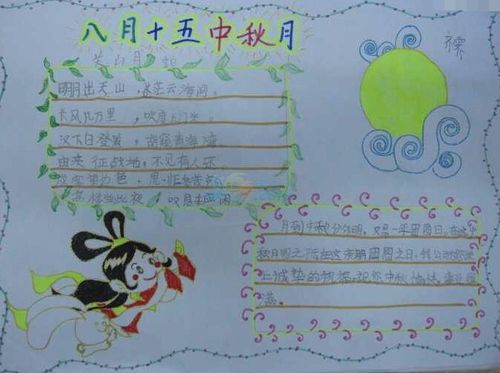 八月十五中秋月
关山月
明月出天山，苍茫云海间。
长风几万里，吹度玉门关。
汉下白登道，胡窥青海湾。
由来征战地，不见有人还。
色，思归多苦颜。
高楼当此夜，叹息未应闲
月到中秋分外明，又是一年团圆日，在这
秋月明之际在这亲朋团圆之日，我
上诚挚的祝福，祝您中秋愉快，事业
满。